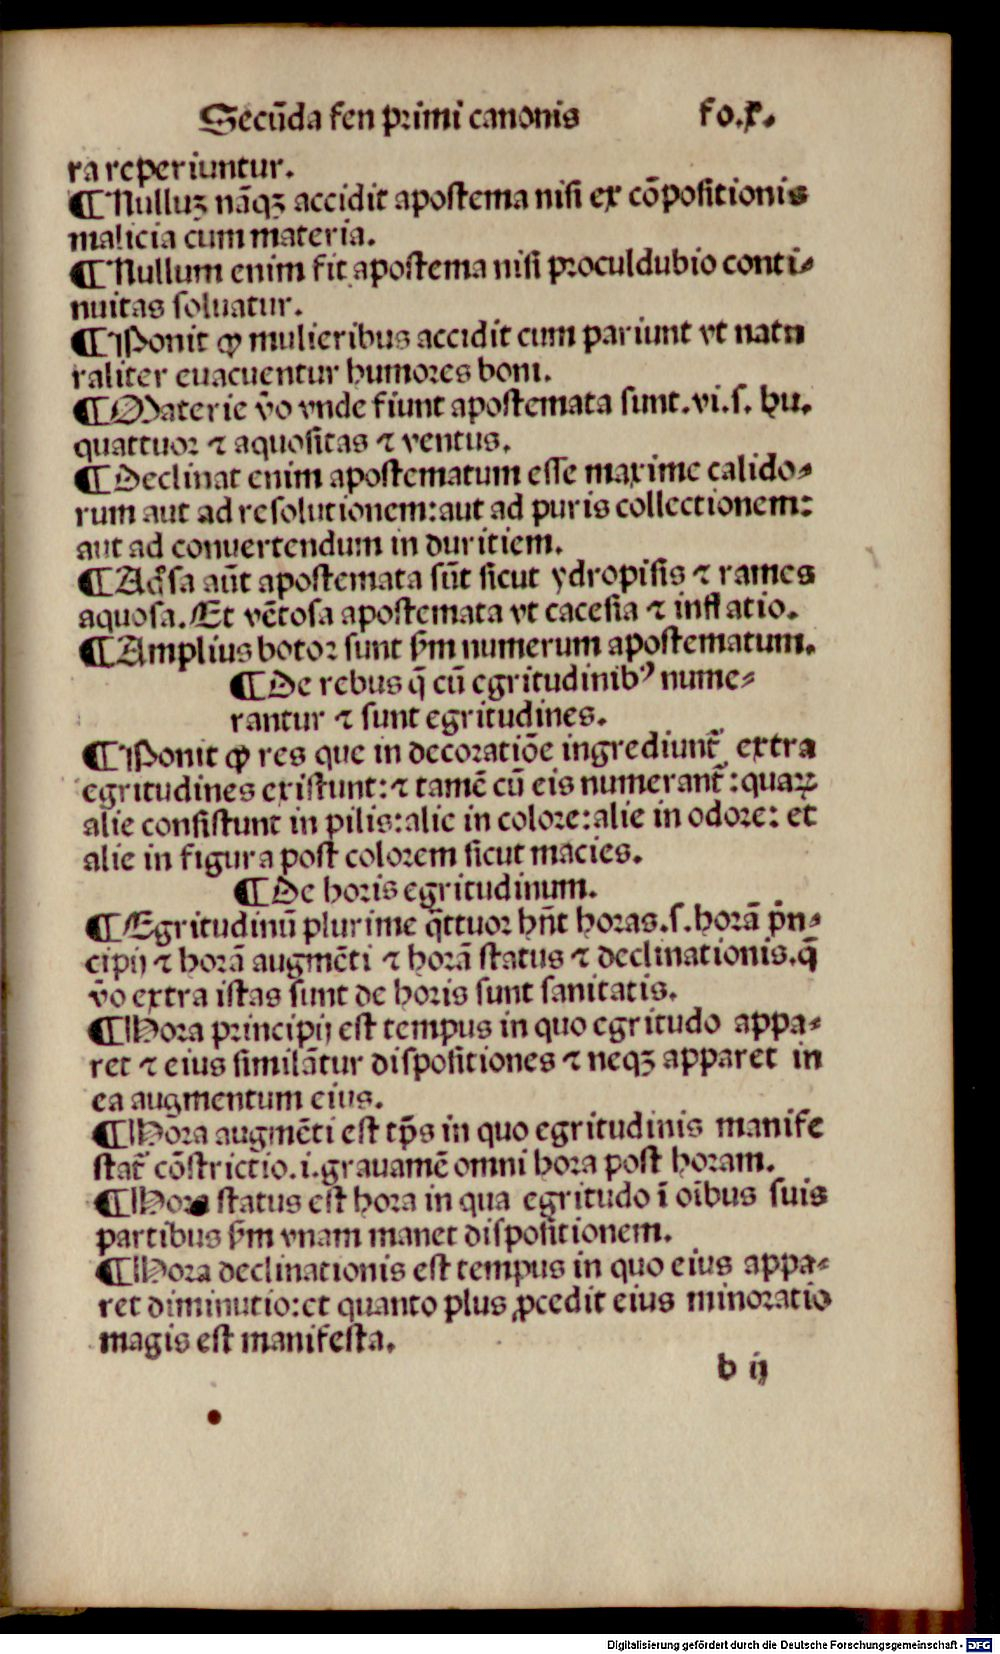 Secūda fen primi canonis fo.x.
ra reperiuntur.
¶ Nulluꝫ nāqꝫ accidit apostema nisi ex cōpositionis
malicia cum materia.
¶ Nullum enim fit apostema nisi proculdubio conti⸗
nuitas soluatur.
¶ Ponit ꝙ mulieribus accidit cum pariunt vt natu
raliter euacuentur humores boni.
¶ Materie v̄o vnde fiunt apostemata sunt.vi.s. hu.
quattuor ⁊ aquositas ⁊ ventus.
¶ Declinat enim apostematum esse maxime calido⸗
rum aut ad resolutionem:aut ad puris collectionem:
aut ad conuertendum in duritiem.
¶ Aq̄sa aūt apostemata sūt sicut ydropisis ⁊ rames
aquosa. Et vētosa apostemata vt cacesia ⁊ inflatio.
¶ Amplius botor sunt ẜm numerum apostematum.
¶ De rebus q̄ cū egritudinibꝰ nume⸗
rantur ⁊ sunt egritudines.
¶ Ponit ꝙ res que in decoratiōe ingrediunt᷑ extra
egritudines existunt:⁊ tamē cū eis numerant᷑:quaꝝ
alie consistunt in pilis:alie in colore:alie in odore: et
alie in figura post colorem sicut macies.
¶ De horis egritudinum.
¶ Egritudinū plurime q̄ttuor hn̄t horas.s.horā p̄n⸗
cipij ⁊ horā augmēti ⁊ horā status ⁊ declinationis.q̄
v̄o extra istas sunt de horis sunt sanitatis.
¶ Hora principij est tempus in quo egritudo appa⸗
ret ⁊ eius similātur dispositiones ⁊ neqꝫ apparet in
ea augmentum eius.
¶ Hora augmēti est tp̄s in quo egritudinis manife
stat᷑ cōstrictio.i.grauamē omni hora post horam.
¶ Hora status est hora in qua egritudo ī oībus suis
partibus ẜm vnam manet dispositionem.
¶ Hora declinationis est tempus in quo eius appa⸗
ret diminutio:et quanto plus ꝓcedit eius minoratio
magis est manifesta.
b ij
Digitalisierung gefördert durch die Deutsche Forschungsgemeinschaft - DFG